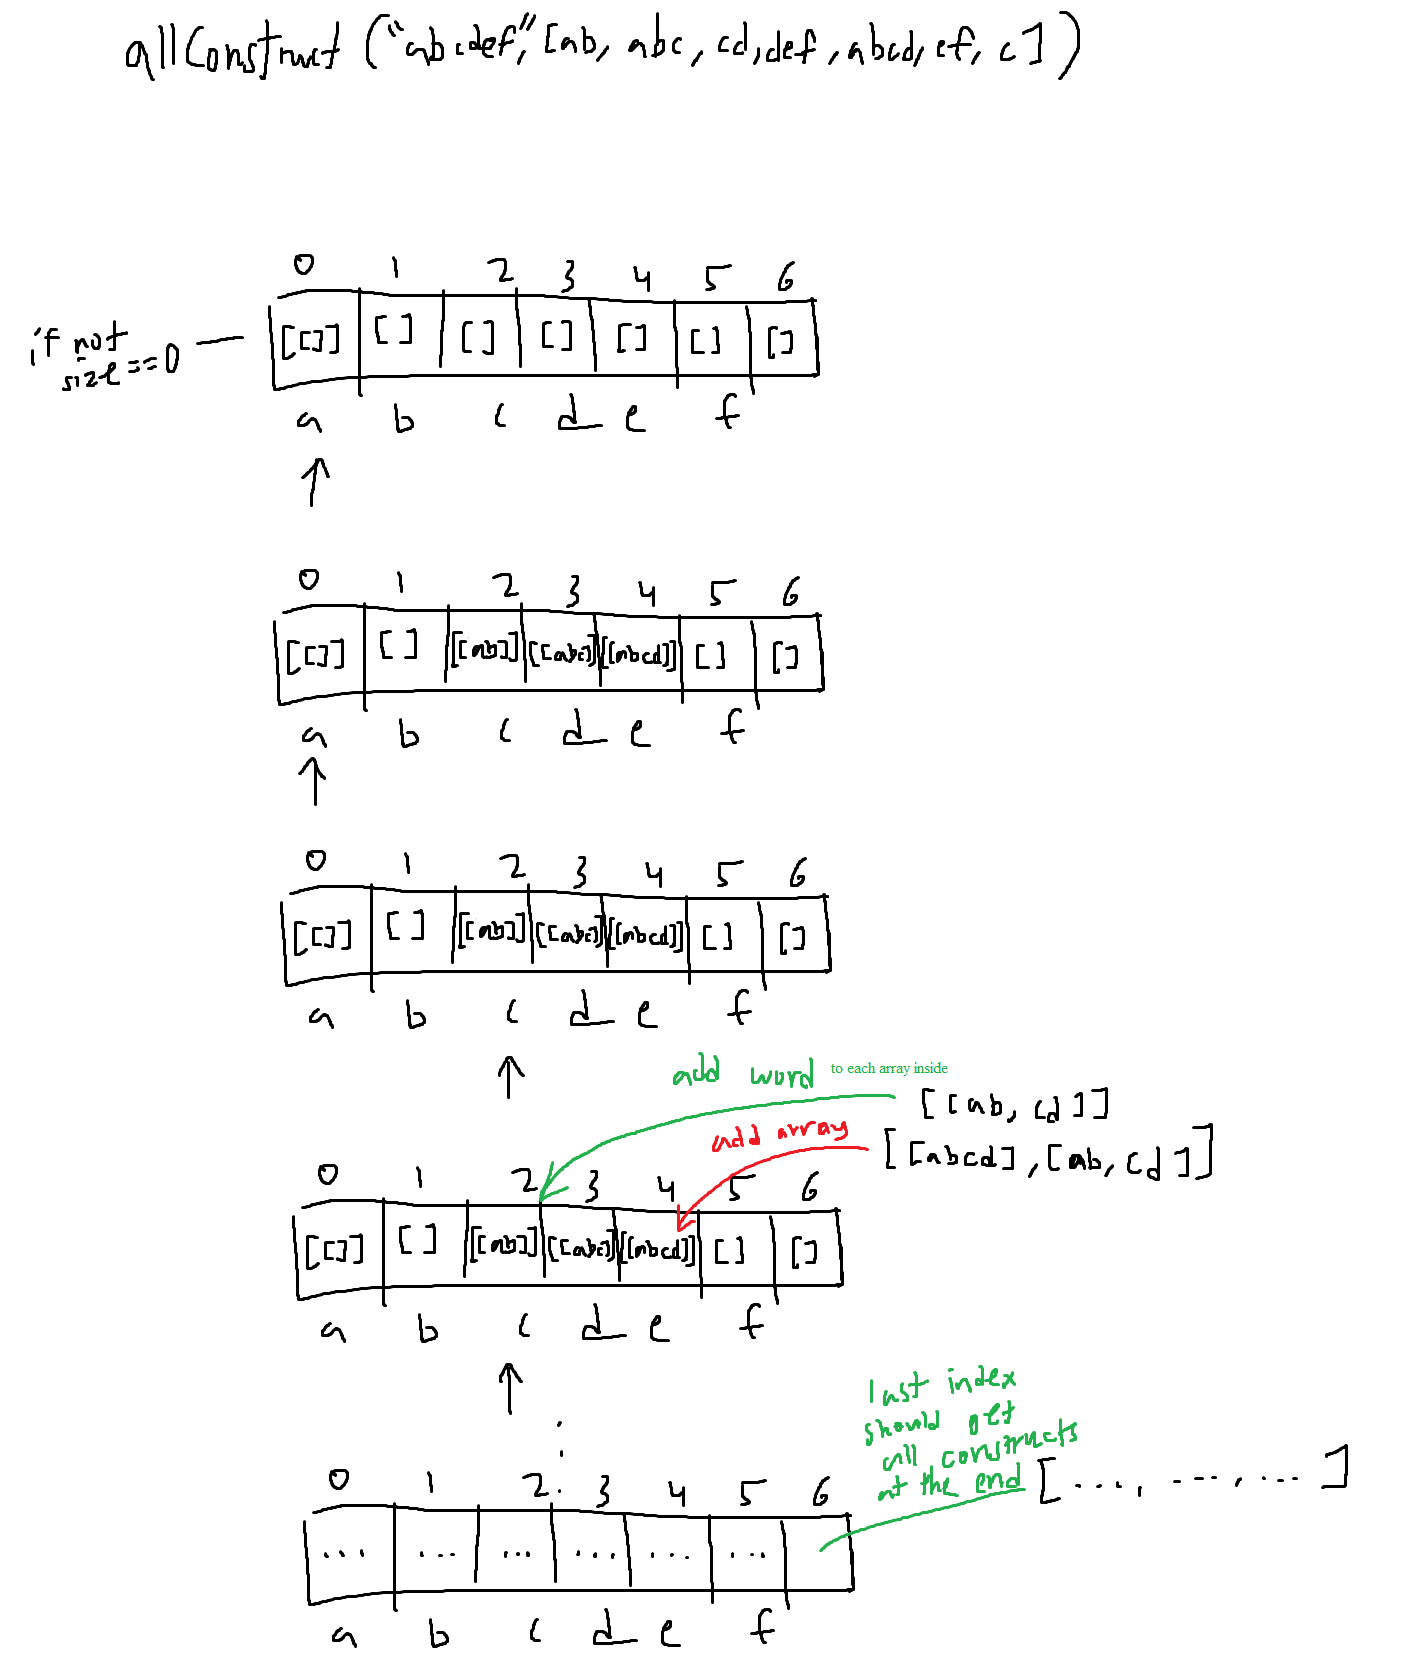 allConstruct ("abcdef," [ab, abc, cd, def, abcd, ef, c])
0 1 2 3 4 5 6
if not size==0
[[]] [] [] [] [] [] []
a b c d e f
0 1 2 3 4 5 6
[[]] [] [[ab]] [[abc]] [[abcd]] [] []
a b c d e f
0 1 2 3 4 5 6
[[]] [] [[ab]] [[abc]] [[abcd]] [] []
a b c d e f
add word to each array inside
[[ab, cd]]
add array
[[abcd], [ab, cd]]
0 1 2 3 4 5 6
[[]] [] [[ab]] [[abc]] [[abcd]] [] []
a b c d e f
last index
should get
all constructs
at the end [..., ..., ...]
0 1 2 3 4 5 6
... ... ... ... ... ...
a b c d e f